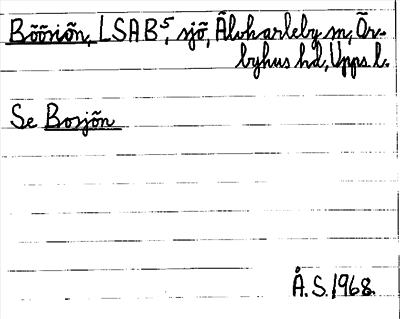 Böösiön, LSAB⁵, sjö, Älvkarleby sn, Ör-
byhus hd, Upps. l.
Se Bosjön
Å. S. 1968.